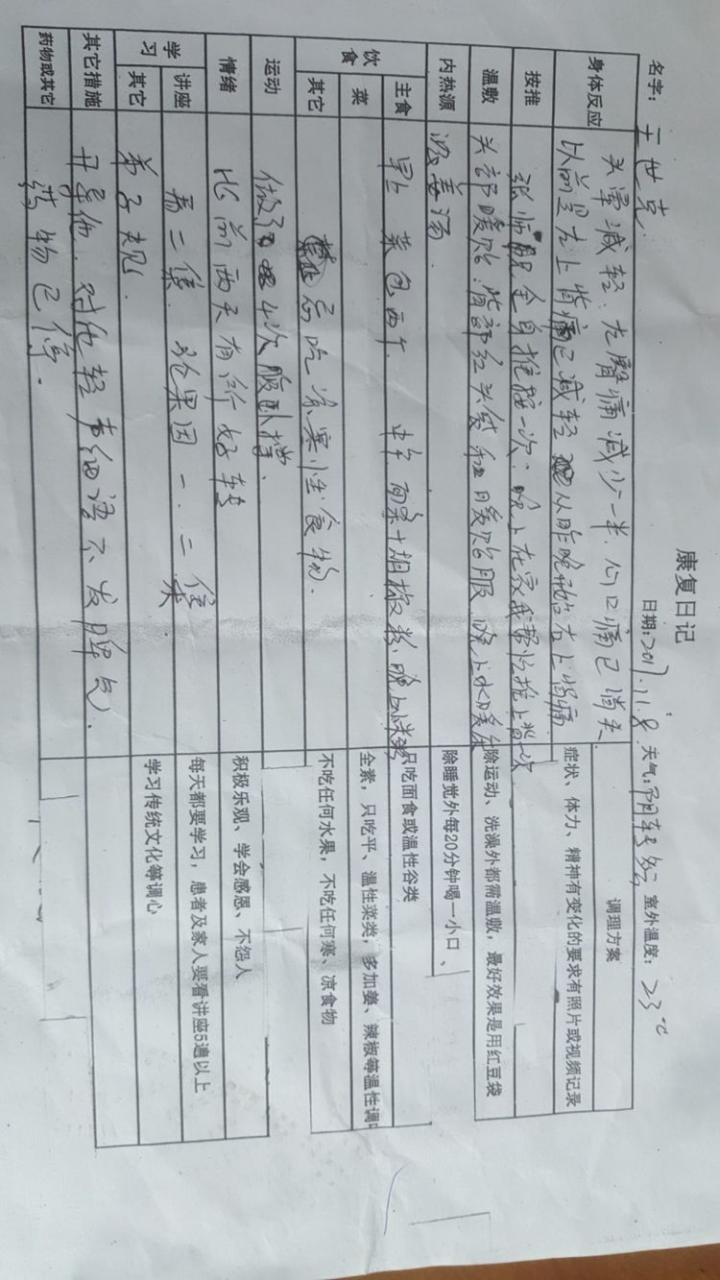 康复日记
名字: 王世克 日期:2017.11.8 天气:阴转多云 室外温度: 23℃
调理方案
身体反应 头晕减轻. 左肾痛减少一半. 心口痛已消失
以前是左上背痛已减轻 从昨晚开始右上背痛 症状、体力、精神有变化的要求有照片或视频记录
按推 张师服全身推按一次. 晚上在家我帮忙推上背一次
温敷 头部暖贴. 背部红头袋和暖贴服 晚上水暖 除运动、洗澡外都需温敷，最好效果是用红豆袋
内热源 浓姜汤. 除睡觉外每20分钟喝一小口、
饮食 主食 早上 菜包两个 中午 面条+胡椒粉. 晚上小米粥 只吃面食或温性谷类
菜 全素，只吃平、温性菜类，多加姜、辣椒等温性调
其它 忌吃凉寒性食物. 不吃任何水果，不吃任何寒、凉食物
运动 做了4次俯卧撑.
情绪 比前两天有所好转 积极乐观、学会感恩、不怨人
学习 讲座 看二集. 效果因一.二集 每天都要学习，患者及家人要看讲座5遍以上
其它 弟子规. 学习传统文化等调心
其它措施 开导他. 对他轻声细语不发脾气.
药物或其它 药物已停.